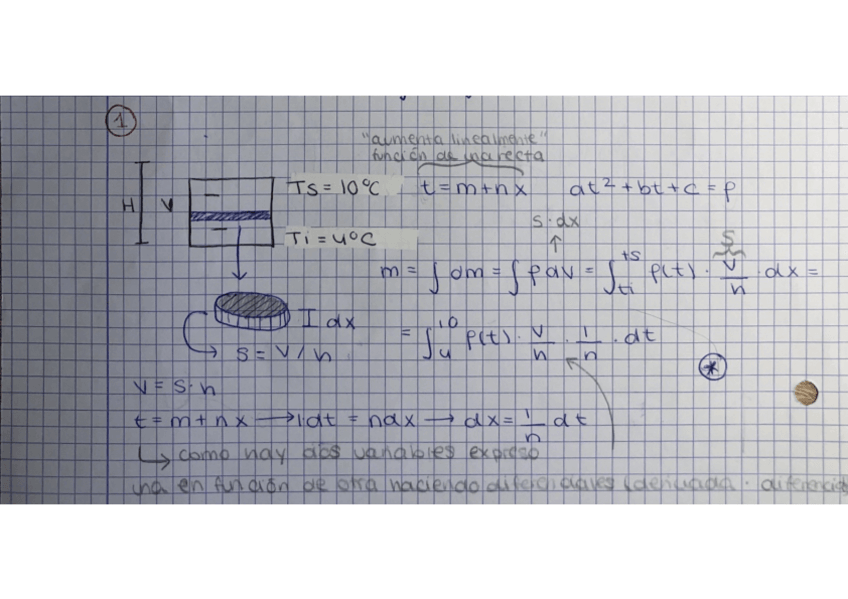 1
"aumenta linealmente"
función de una recta
H V Ts = 10ºC t = m + n x at² + bt + c = ρ
S · dx
Ti = 4ºC
m = ∫ dm = ∫ ρ dv = ∫ti^ts ρ(t) · V/h · dx =
S
I dx
S = V / h
= ∫4^10 ρ(t) · V/h · 1/n · dt
*
V = S · h
t = m + n x → 1dt = ndx → dx = 1/n dt
↳ como hay dos variables expreso
una en función de otra haciendo diferenciales (derivada · diferencial